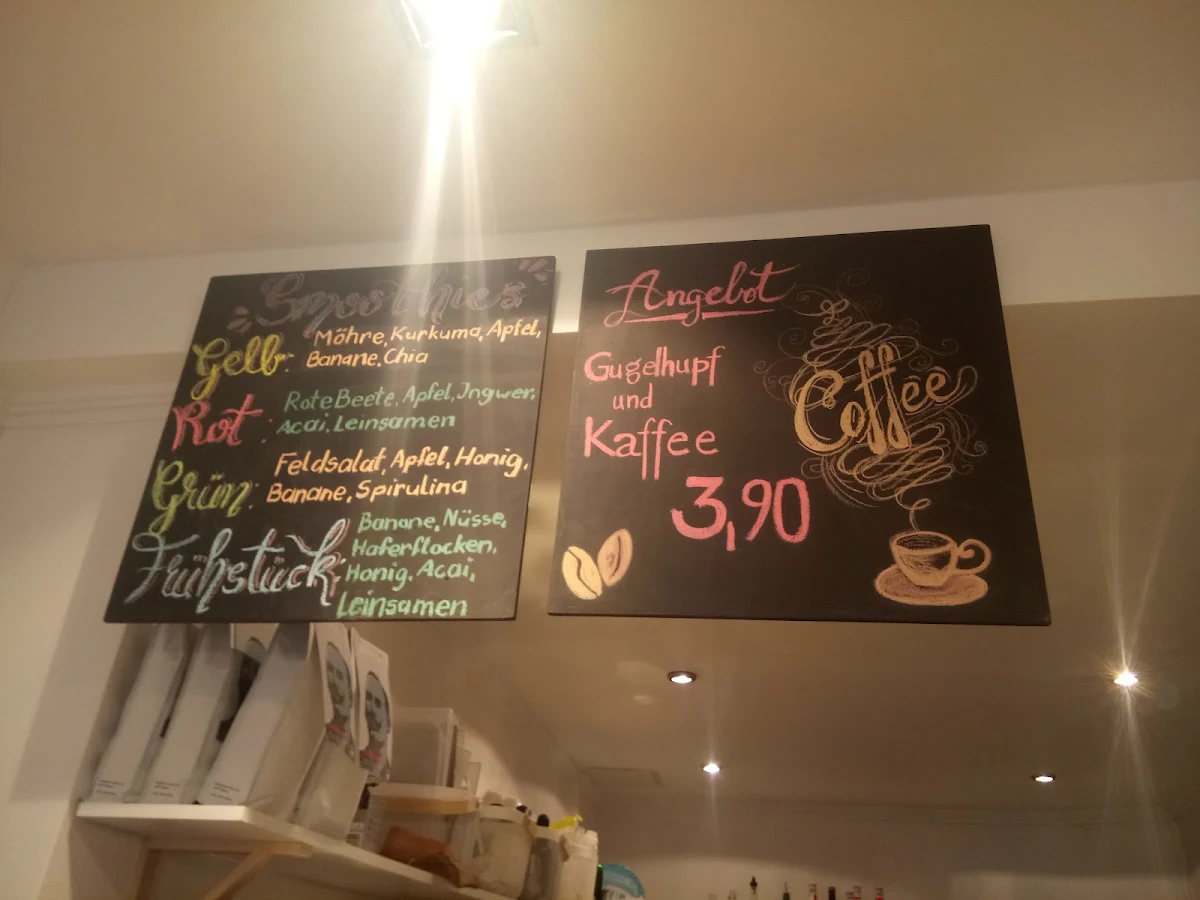 Smoothies
Gelb: Möhre, Kurkuma, Apfel,
Banane, Chia
Rot: Rote Beete, Apfel, Ingwer,
Acai, Leinsamen
Grün: Feldsalat, Apfel, Honig,
Banane, Spirulina
Frühstück: Banane, Nüsse,
Haferflocken,
Honig, Acai,
Leinsamen
Angebot
Gugelhupf
und
Kaffee
3,90
Coffee